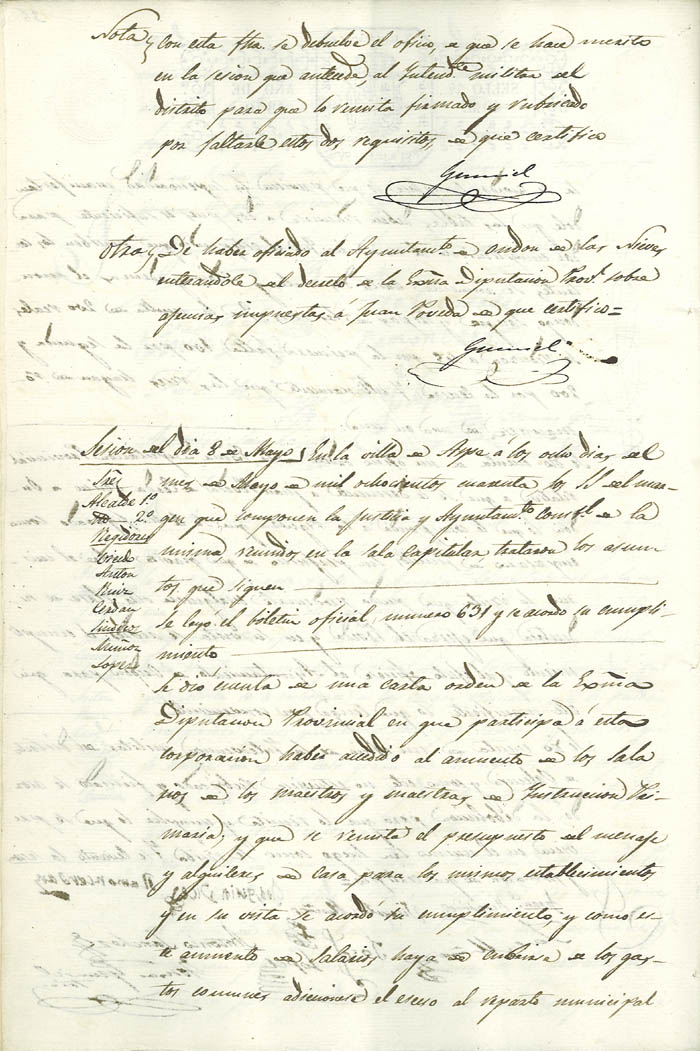 Nota, Con esta fha. se debuelve el oficio, de que se hace merito
en la sesion que antecede, al Intend.te militar del
distrito para que lo remita firmado y rubricado
por faltarle estos dos requisitos, de que certifico
Gumiel
Otra, De haber oficiado al Ayuntam.to de ondon de las Nieves
enterandole del decreto de la Exma Diputacion Prov.l sobre
impuestas á Juan Poveda de que certifico=
Gumiel
Sesion del dia 8 de Mayo, En la villa de Aspe á los ocho dias del
mes de Mayo de mil ochocientos cuarenta los SS del mar-
gen que componen la Justicia y Ayuntam.to Const.l de la
misma reunidos en la sala capitular, trataron los asun-
tos que siguen
Sres
Alcalde 1.º
2.º
Regidores
Anton
Ruiz
Cerdan
Muñoz
Lopez
Se leyo el boletin oficial, numero 631 y se acordo su cumpli-
miento
Se dio cuenta de una carta orden de la Exma
Diputacion Provincial en que participa á esta
corporacion haber accedido al aumento de los sala
rios de los maestros y maestras de Instruccion Pri-
maria, y que se remita el presupuesto del menage
y alquileres de casa para los mismos establecimientos
y en su vista se acordó su cumplimiento, y como es-
te aumento de salarios haya de cubrirse de los gas-
tos comunes adicionese el esceso al reparto municipal